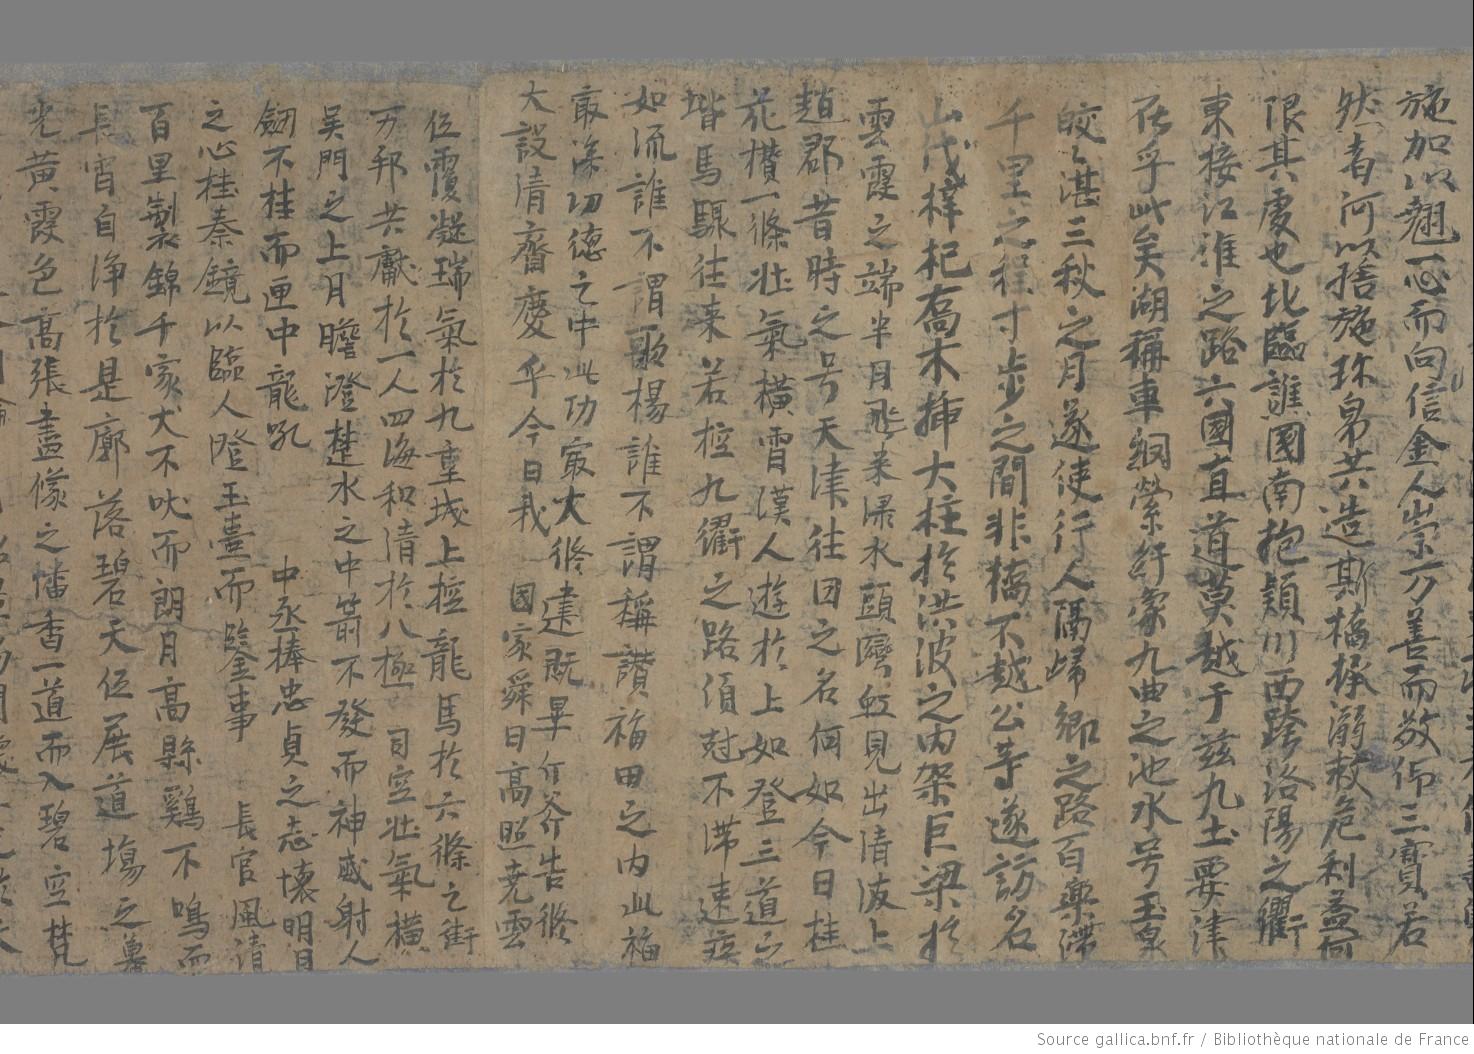 施加以翹心而向信金人崇万善而敬仰三寶若
然者何以捨施珎帛共造斯橋拯溺救危利益何
限其處也北臨譙國南抱穎川西跨洛陽之衢
東接江淮之路六國直道莫越于兹九土要津
在乎此矣湖稱車輞縈紆象九曲之池水号玉泉
皎湛三秋之月遂使行人隔歸鄉之路百
千里之程寸步之間非橋不越公等遂訪名
山伐梓杞喬木插大柱於洪波之内架巨梁於
雲霞之端半月飛来掃水頭彎虹見出清波上
趙郡昔時之号天津往日之名何如今日柱
花攢一條壮氣橫霄漢人遊於上如登三道之
堦馬驟往来若控九衢之路須尅不滯速疾
如流誰不謂歌楊誰不謂稱讚福田之内此福
最深功德之中此功㝡大修建既畢斤斧告修
大設清齋慶乎今日哉 國家舜日高照堯雲
位覆凝瑞氣於九重城上控龍馬於六條之街
万邦共獻於一人四海和清於八極 司空壮氣橫
吳門之上月瞻澄楚水之中箭不發而神威射人
劒不桂而匣中龍吼 中丞捧忠貞之志懷明月
之心桂秦鏡以臨人澄玉臺而鑒事 長官風清
百里製錦千家犬不吠而朗月高縣鷄不鳴而
長宵自淨於是廓落碧天伍展道塲之
光黃霞色高張畫像之幡香一道而入碧空梵